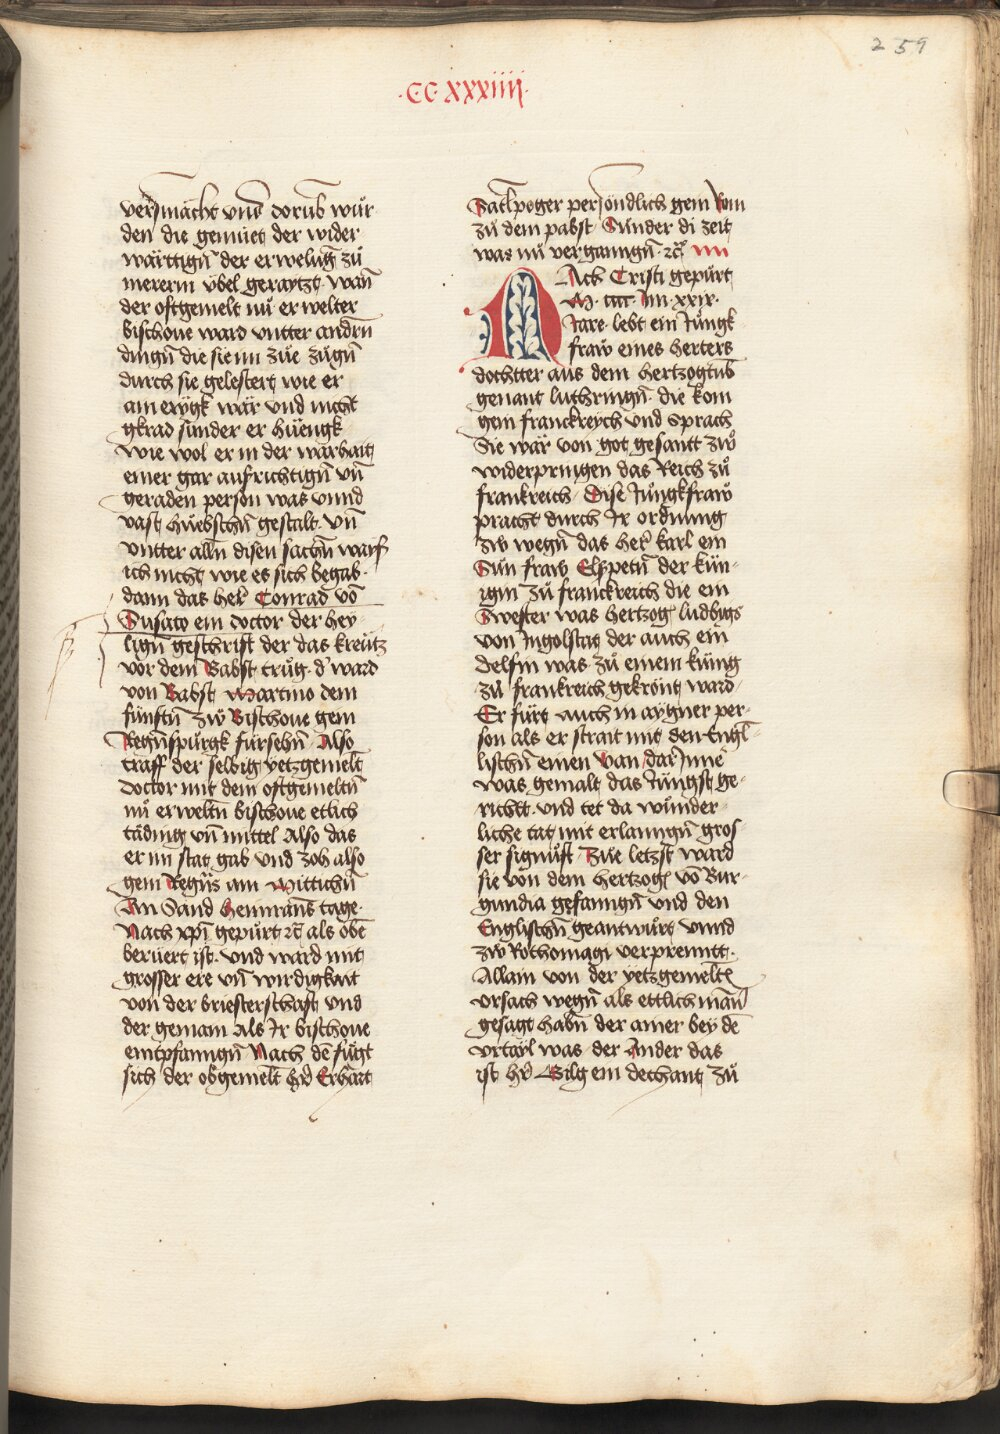 259
·CC·XXXiiij·
versmächt vnd dorūb wůr
den die gemüet der wider
wärttigñ der erwelūg zů
mererm vbel geraytzt· wañ
der oftgemelt nů erwelter
bischoue ward vntter andrñ
dingñ die sie im züe zugñ
durch sie gelestert wie er
am eewgk wär vnd nicht
gkrad sunder er hüengk
wie wol er in der warhait
einer gar aufrichtigñ vñ
geraden person was vnnd
vast hüebschñ gestalt· vñ
vntter allñ disen sachñ warſ
ich nicht wie es sich begab·
dann das her Conrad võ
Susato ein doctor der hey-
ligñ geschrift der das kreutz
vor dem Babst trug· d' ward
von Babst Martino dem
fünftñ zw Bischoue gem
Regñspurgk fürsehñ· Also
traff der selbig yetzgemelt
doctor mit dem oftgemeltñ
nů erweltñ bischoue etlich
täding vñ mittel Also das
er im stat gab vnd zoh also
gem Regñs am Mittichñ
An Sand Hemrans tage·
Nach xp̄i gepürt ꝛc̄ als obē
berüert ist· vnd ward mit
grosser ere vñ wirdigkait
von der briesterschaft vnd
der gemain als Ir bischoue
emtpfanngñ Nach dē fügt
sich der obgemelt h̄r Erhart
Satlpoger persöndlich gem Rom
zů dem pabst· Sunder di zeit
was nů verganngñ· ꝛc̄ ·
NAch Cristi gepürt
M· cccc· Im· xxix·
Iare· lebt ein Jungk
fraw eines herters
dochtter aus dem hertzogtūb
genant luthringñ· die kom
gem franckreych vnd sprach
Sie wär von got gesantt zw
widerpringen das Reich zů
frankreich· Dise Jungkfraw
pracht durch Ir ordnung
zw wegñ das her karl ein
Sun fraw Elspetñ der kün-
igin zů franckreich die ein
Swester was hertzog ludbygs
von Ingolstat der auch ein
delfin was zů einem küng
zů frankreich gekrönt ward·
Er fürt auch in aygner per-
son als er strait mit den Engl-
lischñ einen van· dar Inne
was gemalt das Jungst ge-
richtt· vnd tet da wunder-
liche tat mit erlanngñ gros-
ser signuſt Zue letzst ward
sie von dem hertzog võ Bur-
gundia gefanngñ vnd den
Englischñ geantwurt vnnd
zw Rothomagi verprenntt·
Allain von der yetzgemeltē
vrsach wegñ als ettlich mañ
gesagt habñ der ainer bey dē
vrtayl was· der Ander das
ist h̄r Gilg ein dechant zů